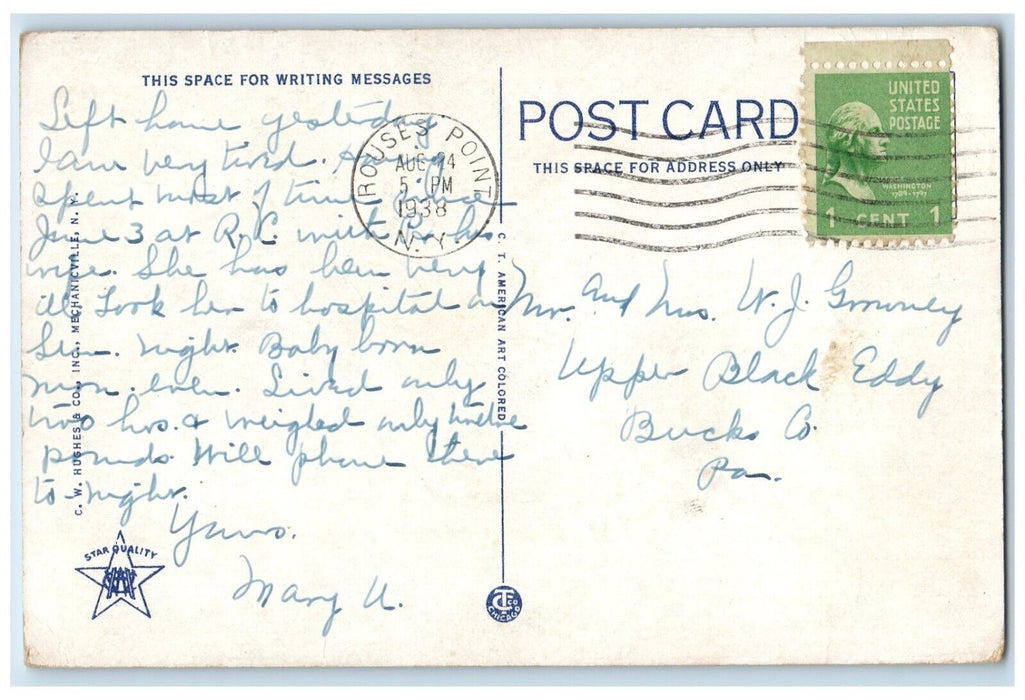 THIS SPACE FOR WRITING MESSAGES
Left home yesterday
I am very tired.
Spent most of time since
June 3 at R.C. with his
wife. She has been very
ill. Took her to hospital on
Sun. night. Baby born
mon. even. Lived only
two hrs. & weighed only twelve
pounds. Will phone there
to night.
Yours.
Mary U.
C. W. HUGHES & CO., INC., MECHANICVILLE, N. Y.
STAR QUALITY
ROUSES POINT
AUG 24
5 PM
1938
N.Y.
C. T. AMERICAN ART COLORED
C.T. CO. CHICAGO
POST CARD
THIS SPACE FOR ADDRESS ONLY
UNITED
STATES
POSTAGE
WASHINGTON
1789-1797
1 CENT 1
Mr. and Mrs. W. J.
Upper Black Eddy
Bucks Co.
Pa.